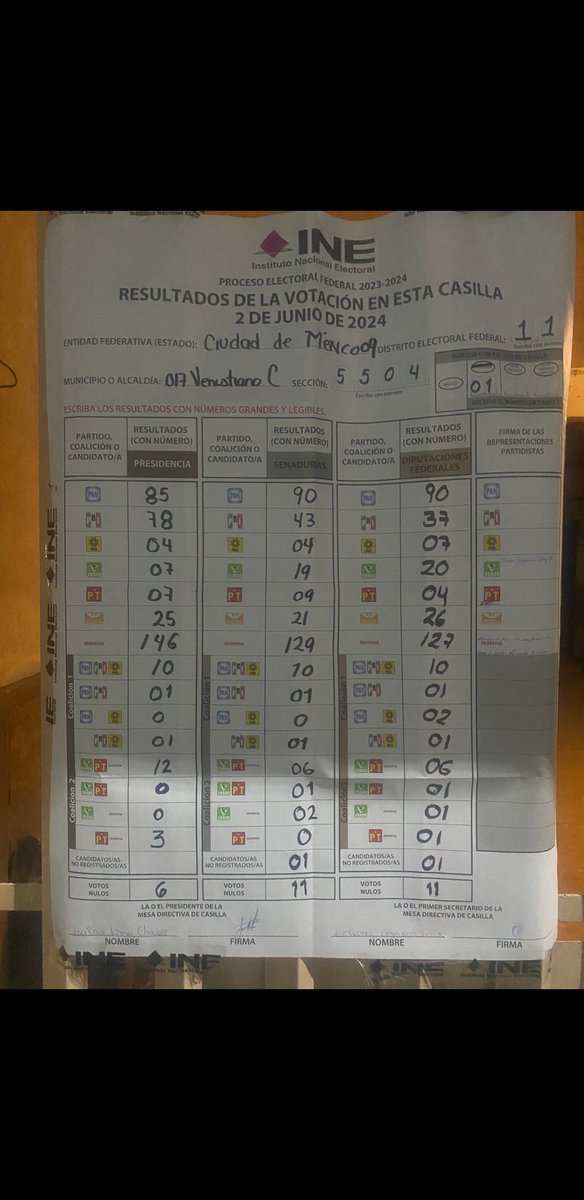 INE
Instituto Nacional Electoral
PROCESO ELECTORAL FEDERAL 2023-2024
RESULTADOS DE LA VOTACIÓN EN ESTA CASILLA
2 DE JUNIO DE 2024
ENTIDAD FEDERATIVA (ESTADO): Ciudad de México 09 DISTRITO ELECTORAL FEDERAL: 1 1
Escriba con número
MUNICIPIO O ALCALDÍA: 017 Venustiano C SECCIÓN: 5 5 0 4
Escriba con número
01
ESCRIBA EL NÚMERO DE CASILLA
ESCRIBA LOS RESULTADOS CON NÚMEROS GRANDES Y LEGIBLES.
PARTIDO, COALICIÓN O CANDIDATO/A RESULTADOS (CON NÚMERO) PRESIDENCIA PARTIDO, COALICIÓN O CANDIDATO/A RESULTADOS (CON NÚMERO) SENADURÍAS PARTIDO, COALICIÓN O CANDIDATO/A RESULTADOS (CON NÚMERO) DIPUTACIONES FEDERALES FIRMA DE LAS REPRESENTACIONES PARTIDISTAS
PAN 85 PAN 90 PAN 90 PAN
PRI 78 PRI 43 PRI 37 PRI
PRD 04 PRD 04 PRD 07 PRD
VERDE 07 VERDE 19 VERDE 20 VERDE
PT 07 PT 09 PT 04 PT
25 21 26
morena 146 morena 129 morena 127 morena
Coalición 1 Coalición 1 Coalición 1
PAN PRI PRD 10 PAN PRI PRD 10 PAN PRI PRD 10
PAN PRI 01 PAN PRI 01 PAN PRI 01
PAN PRD 0 PAN PRD 0 PAN PRD 02
PRI PRD 01 PRI PRD 01 PRI PRD 01
Coalición 2 Coalición 2 Coalición 2
VERDE PT morena 12 VERDE PT morena 06 VERDE PT morena 06
VERDE PT 0 VERDE PT 01 VERDE PT 01
VERDE morena 0 VERDE morena 02 VERDE morena 01
PT morena 3 PT morena 0 PT morena 01
CANDIDATOS/AS NO REGISTRADOS/AS CANDIDATOS/AS NO REGISTRADOS/AS 01 CANDIDATOS/AS NO REGISTRADOS/AS 01
VOTOS NULOS 6 VOTOS NULOS 11 VOTOS NULOS 11
LA O EL PRESIDENTE DE LA MESA DIRECTIVA DE CASILLA LA O EL PRIMER SECRETARIO DE LA MESA DIRECTIVA DE CASILLA
NOMBRE FIRMA NOMBRE FIRMA
INE INE INE INE